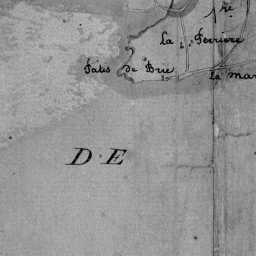 la Ferriere
Patis de Brie
la mar
D E